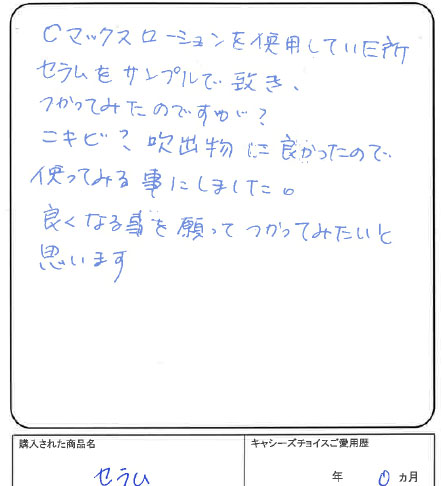 Cマックスローションを使用していた所
セラムをサンプルで頂き、
つかってみたのですが?
ニキビ?吹出物に良かったので
使ってみる事にしました。
良くなる事を願ってつかってみたいと
思います
購入された商品名
キャシーズチョイスご愛用歴
セラム
年 0 ヵ月